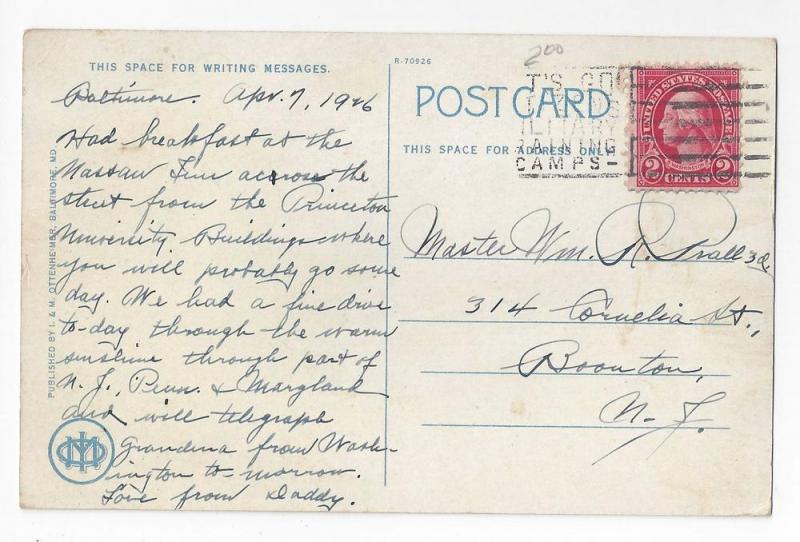 THIS SPACE FOR WRITING MESSAGES.
Baltimore. Apr. 7, 1926
Had breakfast at the
Nassau Inn across the
street from the Princeton
University Buildings where
you will probably go some
day. We had a fine drive
to-day through the warm
sunshine through part of
N. J., Penn. & Maryland
and will telegraph
Grandma from Wash-
ington to-morrow.
Love from Daddy.
PUBLISHED BY I. & M. OTTENHEIMER, BALTIMORE, MD.
R-70926
200
POST CARD
THIS SPACE FOR ADDRESS ONLY
T'S GO
ILITARY
AINING
CAMPS-
UNITED STATES POSTAGE
2 CENTS 2
Master Wm. R. Prall 3d.
314 Cornelia St.,
Boonton,
N. J.